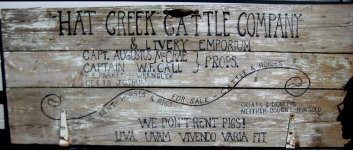 HAT CREEK CATTLE COMPANY
& LIVERY EMPORIUM
CAPT. AUGUSTUS McCRAE
CAPTAIN W.F. CALL } PROPS.
P.E. PARKER WRANGLER
DEETS, JOSHUA
FOR RENT: HORSES & RIGS FOR SALE: CATTLE & HORSES
GOATS & DONKEYS
NEITHER BOUGHT NOR SOLD
WE DON'T RENT PIGS!
UVA UVAM VIVENDO VARIA FIT